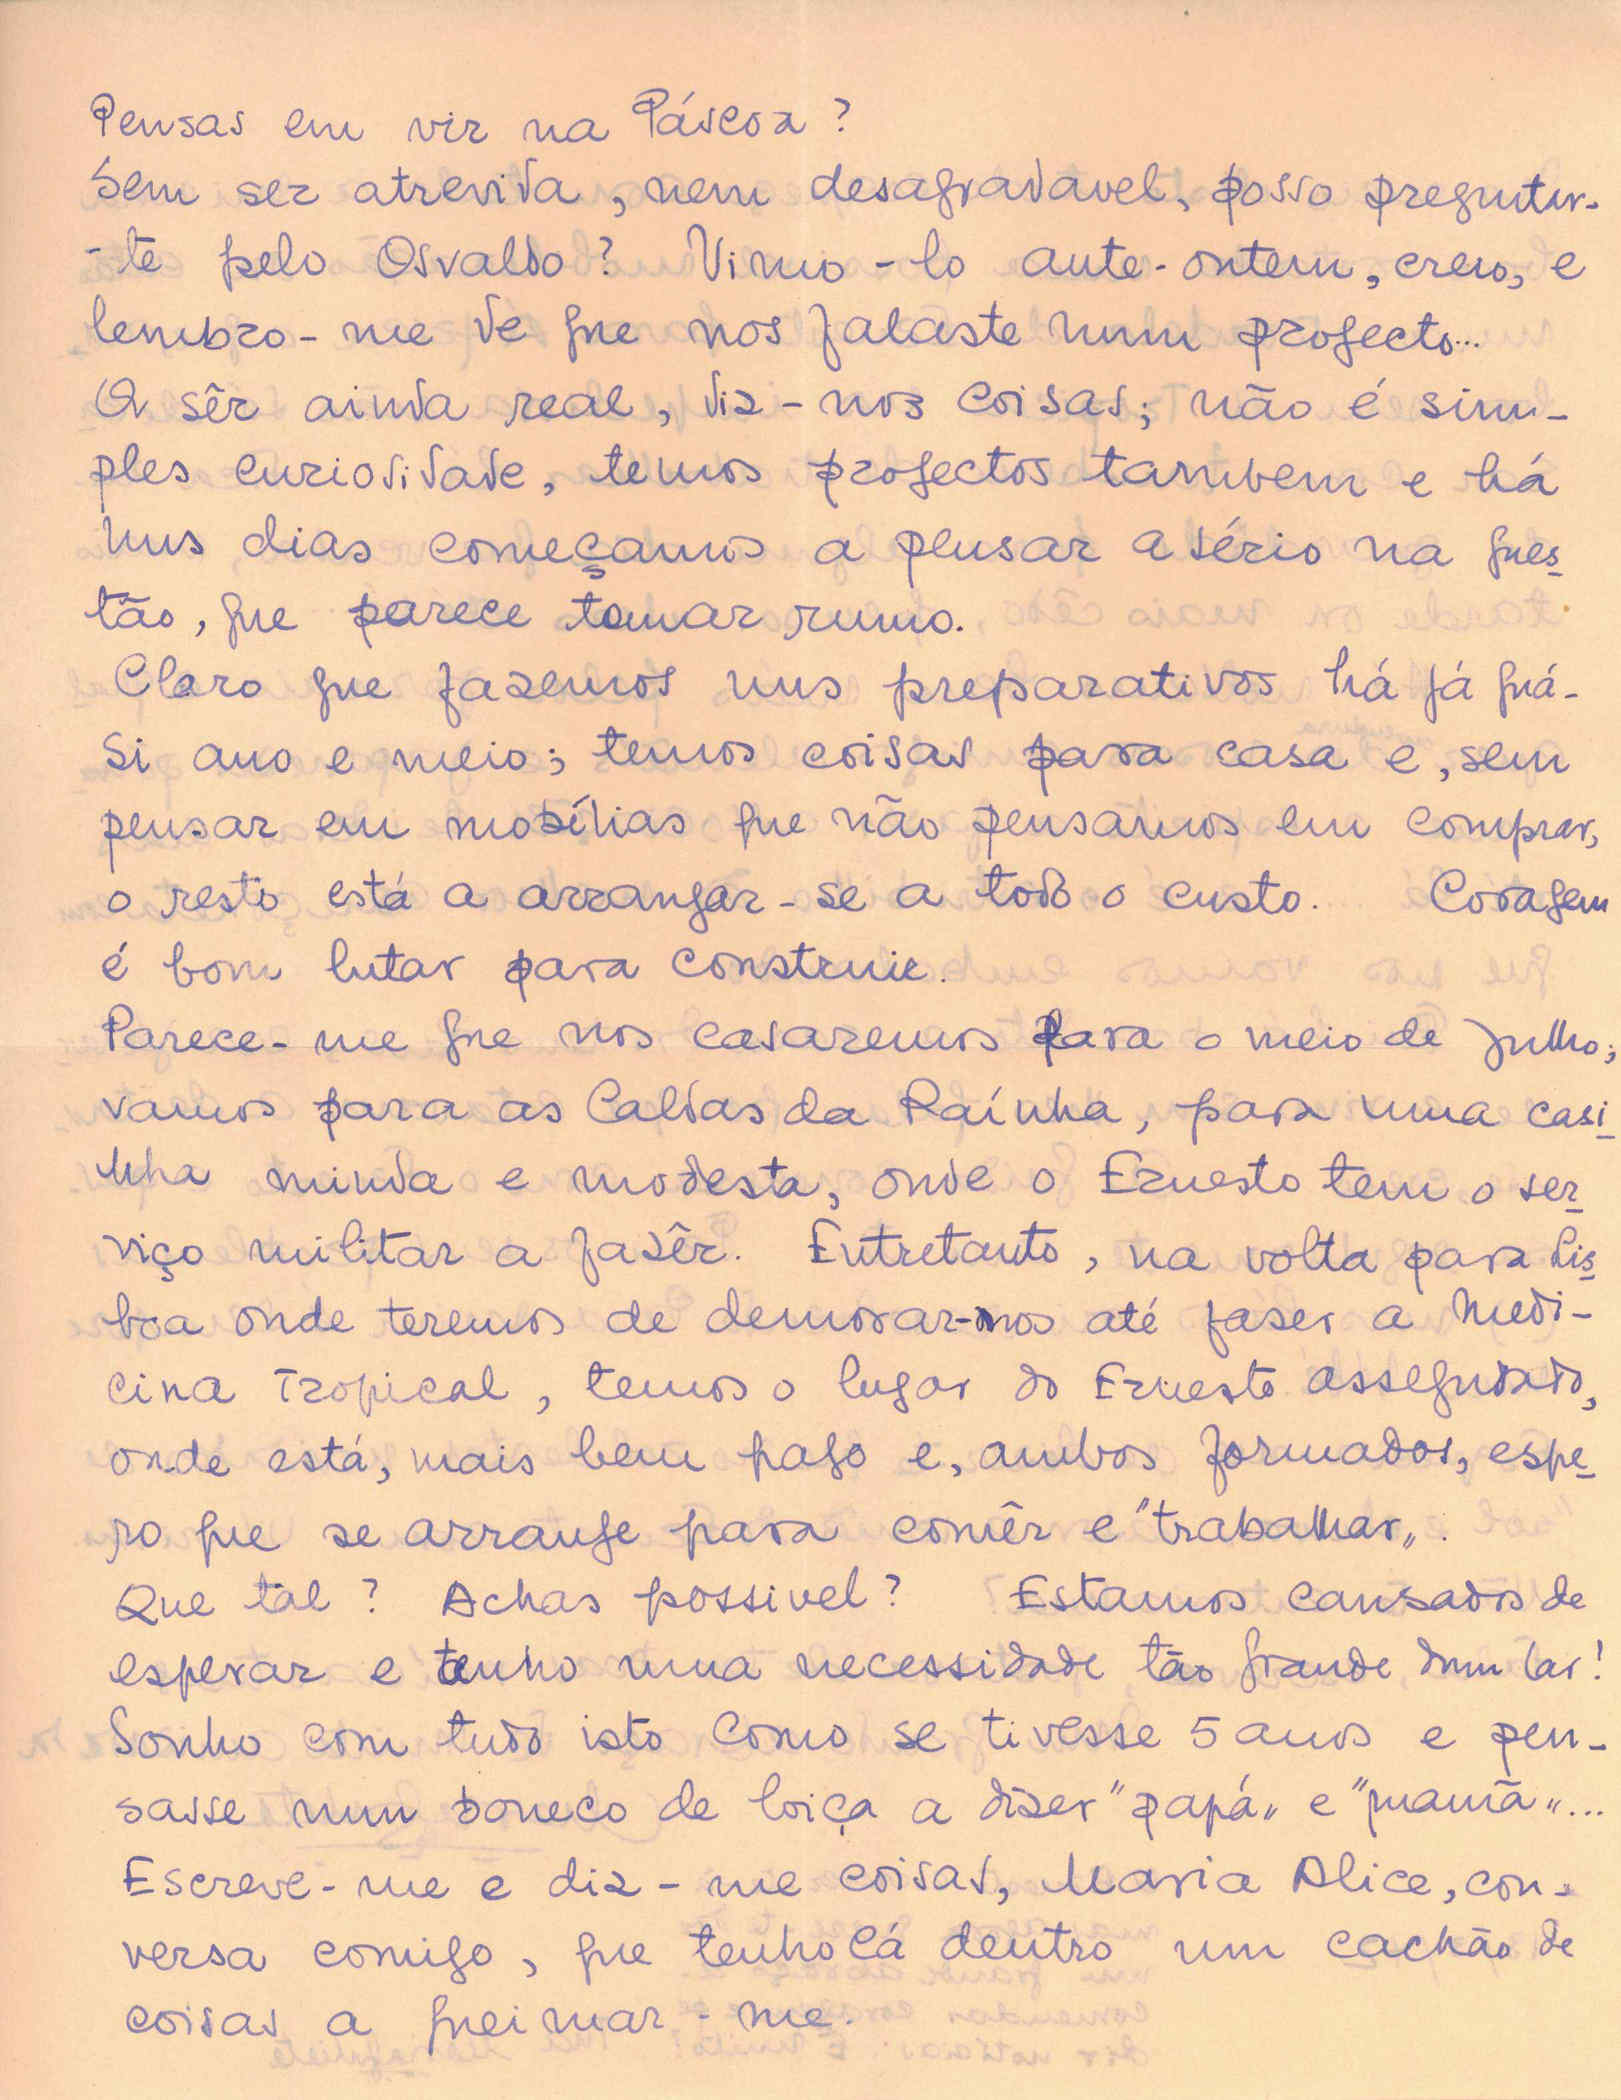 Pensas em vir na Páscoa?
Sem ser atrevida, nem desagradavel, posso preguntar-
-te pelo Osvaldo? Vimo-lo ante-ontem, creio, e
lembro-me de que nos falaste num projecto...
A sêr ainda real, diz-nos coisas; não é sim-
ples curiosidade, temos projectos tambem e há
uns dias começamos a pensar a sério na ques-
tão, que parece tomar rumo.
Claro que fazemos uns preparativos há já quá-
si ano e meio; temos coisas para casa e, sem
pensar em mobílias que não pensamos em comprar,
o resto está a arranjar-se a todo o custo. Coragem
é bom lutar para construir.
Parece-me que nos casaremos para o meio de Julho;
vamos para as Caldas da Raínha, para uma casi-
nha minda e modesta, onde o Ernesto tem o ser-
viço militar a fazêr. Entretanto, na volta para Lis-
boa onde teremos de demorar-nos até fazer a Medi-
cina Tropical, temos o lugar do Ernesto assegurado,
onde está, mais bem pago e, ambos formados, espe-
ro que se arranje para comêr e "trabalhar".
Que tal? Achas possivel? Estamos cansados de
esperar e tenho uma necessidade tão grande dum lar!
Sonho com tudo isto como se tivesse 5 anos e pen-
sasse num boneco de loiça a dizer "papá" e "mamã"...
Escreve-me e diz-me coisas, Maria Alice, con-
versa comigo, que tenho cá dentro um cachão de
coisas a queimar-me.